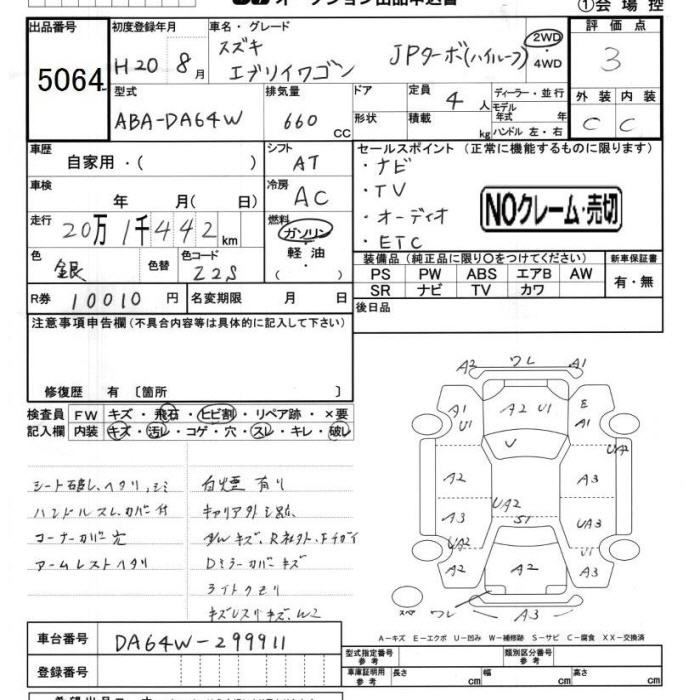 オークション出品申込書
①会場控
出品番号 初度登録年月 車名・グレード 2WD・4WD 評価点
5064 H20 8月 スズキ エブリイワゴン JPターボ(ハイルーフ) 3
型式 排気量 ドア 定員 4人 ディーラー・並行 外装 内装
ABA-DA64W 660 CC 形状 積載 kg モデル年式 年 C C
ハンドル 左・右
車歴 シフト セールスポイント(正常に機能するものに限ります)
自家用・( ) AT ・ナビ
車検 冷房 ・TV
年 月( 日) AC ・オーディオ
NOクレーム・売切
走行 燃料 ・ETC
20万1千442km ガソリン・軽油・( )
色 色替 色コード 装備品(純正品に限り○をつけてください) 新車保証書
銀 Z2S PS PW ABS エアB AW 有・無
SR ナビ TV カワ
R券 10010円 名変期限 月 日
後日品
注意事項申告欄(不具合内容等は具体的に記入して下さい)
修復歴 有〔箇所 〕
検査員 FW キズ・飛石・ヒビ割・リペア跡・×要
記入欄 内装 キズ・汚レ・コゲ・穴・スレ・キレ・破レ
シート破レ、ヘタリ、シミ
ハンドルスレ、カバー付
コーナーカバー欠
アームレストヘタリ
白煙有り
キャリア外シ跡
Dミラーカバーキズ
ライトクモリ
A2 ワレ A1
A1 U1 A2 U1 E A1
V UA2
A2 A3
UA2
A3 S1 UA3
UA2 U1
A2 A2 A3
スペア ワレ A3
A-キズ E-エクボ U-凹み W-補修跡 S-サビ C-腐食 XX-交換済
車台番号 DA64W-299911
登録番号
型式指定番号 参考 類別区分番号 参考
車庫証明用 参考 長さ cm 幅 cm 高さ cm